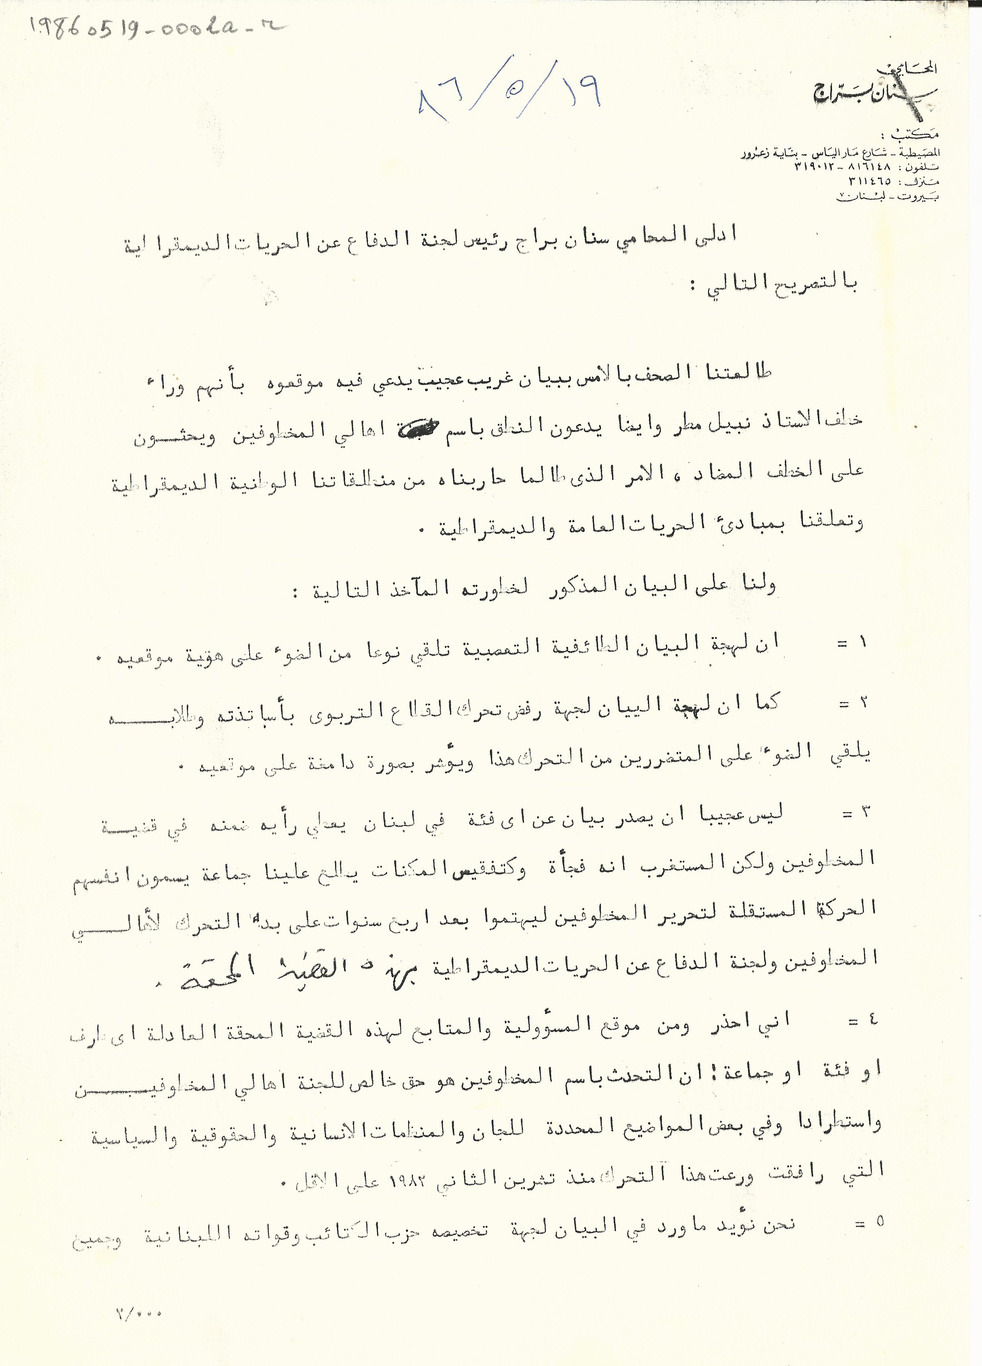 19860519-0002a-r
٨٦/٥/١٩
المحامي
سنان برّاج
مكتب :
المصيطبة - شارع مار الياس - بناية زعرور
تلفون : ٨١٦١٤٨ - ٣١٩٠١٢
منزل : ٣١١٤٦٥
بيروت - لبنان
ادلى المحامي سنان براج رئيس لجنة الدفاع عن الحريات الديمقراطية
بالتصريح التالي :
طالعتنا الصحف بالامس ببيان غريب عجيب يدعي فيه موقعوه بأنهم وراء
خلف الاستاذ نبيل مطر وايضا يدعون النطق باسم اهالي المخطوفين ويحثون
على الخطف المضاد ، الامر الذى طالما حاربناه من منطلقاتنا الوطنية الديمقراطية
وتعلقنا بمبادئ الحريات العامة والديمقراطية .
ولنا على البيان المذكور لخطورته المآخذ التالية :
١ = ان لهجة البيان الطائفية التعصبية تلقي نوعا من الضوء على هوية موقعيه .
٢ = كما ان لهجة البيان لجهة رفض تحرك القطاع التربوى بأساتذته وطلابه
يلقي الضوء على المتضررين من التحرك هذا ويؤشر بصورة دامغة على موقعيه .
٣ = ليس عجيبا ان يصدر بيان عن اى فئة في لبنان يعطي رأيه ضمنه في قضية
المخطوفين ولكن المستغرب انه فجأة وكتفقيس المكنات يطلع علينا جماعة يسمون انفسهم
الحركة المستقلة لتحرير المخطوفين ليهتموا بعد اربع سنوات على بدء التحرك لأهالي
المخطوفين ولجنة الدفاع عن الحريات الديمقراطية بهذه القضية المحقة .
٤ = اني احذر ومن موقع المسؤولية والمتابع لهذه القضية المحقة العادلة اى طرف
او فئة او جماعة : ان التحدث باسم المخطوفين هو حق خالص للجنة اهالي المخطوفين
واستطرادا وفي بعض المواضيع المحددة للجان والمنظمات الانسانية والحقوقية والسياسية
التي رافقت ورعت هذا التحرك منذ تشرين الثاني ١٩٨٢ على الاقل .
٥ = نحن نؤيد ما ورد في البيان لجهة تخصيصه حزب الكتائب وقواته اللبنانية وجميع
٢/٠٠٠